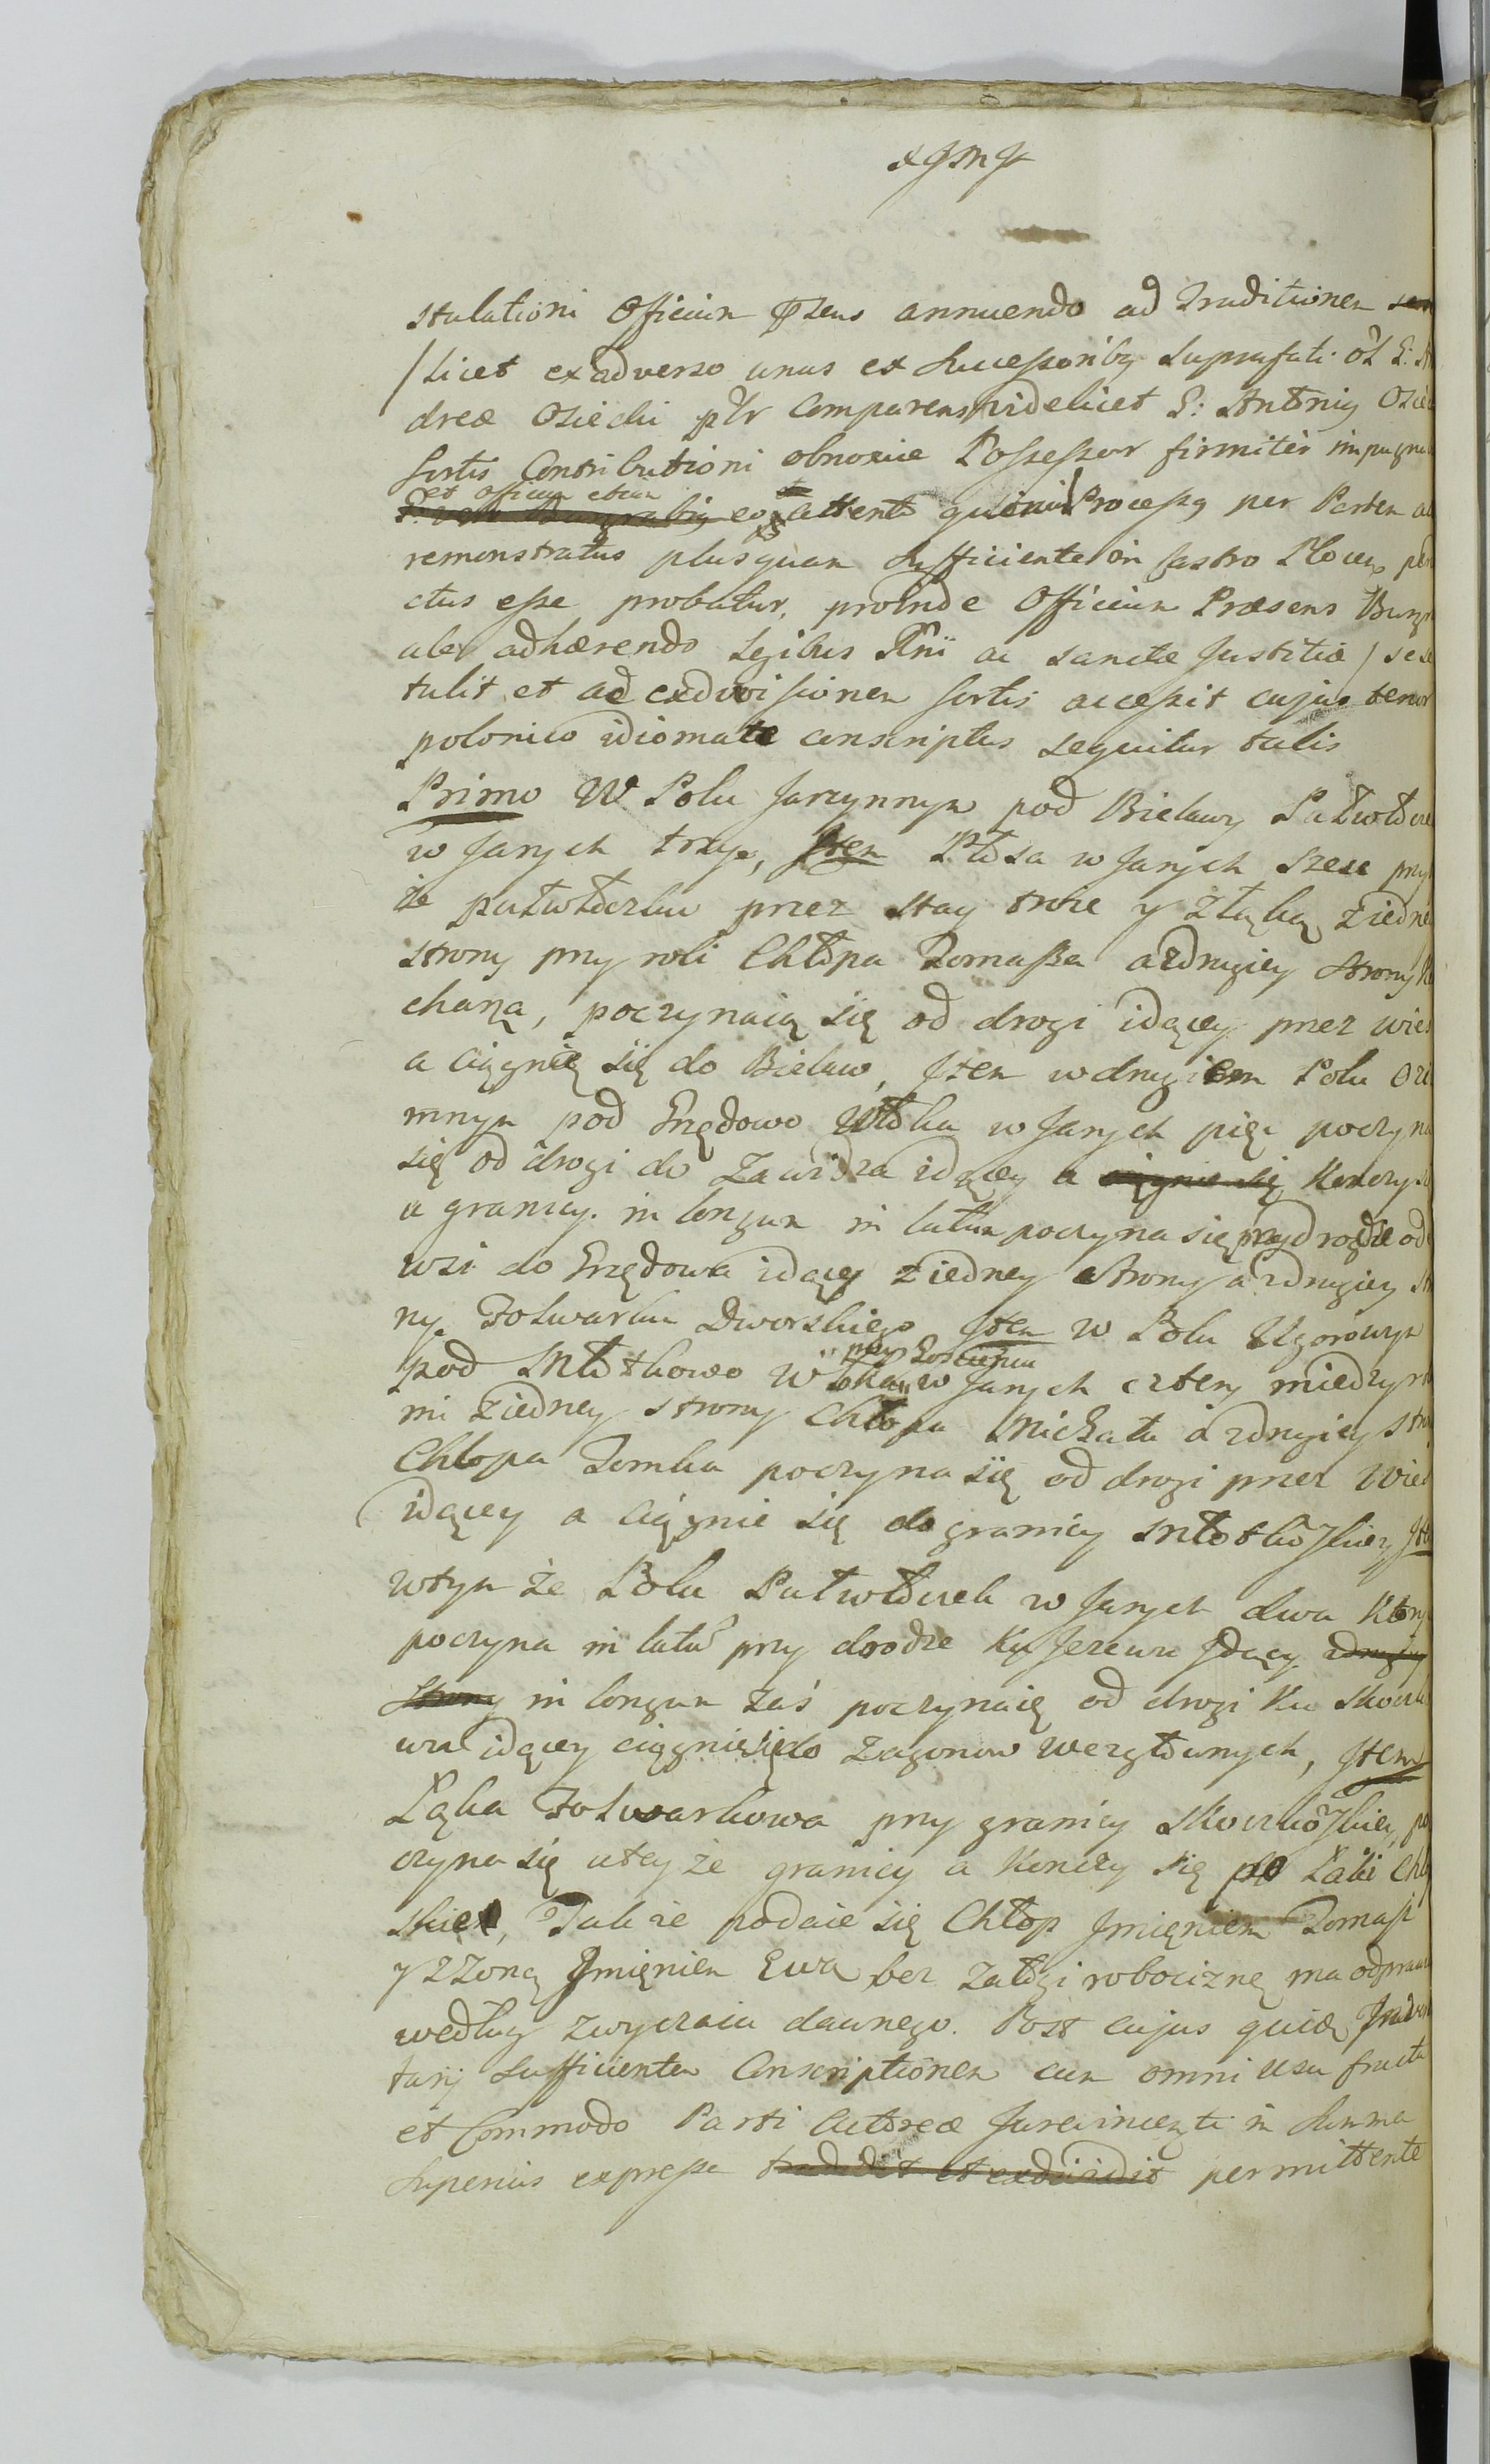 stulationi Officium Pzens annuendo ad Traditionem
/ licet ex adverso unus ex Successoribg suprafati ol G:
dreæ Osiecki pltr Comparens videlicet G: Antonig Osie
Sortis Contributioni obnoxiæ Possessor firmiter impugna
et Officium etiam
eo attento quoniam Processg per Partem
remonstratus plusquam sufficienter in Castro Plocen
ctus esse probatur, proinde Officium Præsens Burgr
ale adhærendo Legibus Rnii ac sanctæ Justitiæ / sese
tulit et ad exdivisionem sortis accessit cujus tenor
polonico idiomate conscriptus sequitur talis
Primo W Polu Jarzynnym pod Bielawy Pułwłocze
w Janych trzy, Item Płosa w Janych szesc przy
że pułwłoczku przez Stay troie y z Łąką z iedne
strony przy roli Chłopa Tomasza a z drugiey strony
chana, poczynaią się od drogi idącey przez wies
a ciągnie się do Bielaw, Item w drugiem Polu Ozi
mnym pod Grzędowo Włoka w Janych pięc poczyna
się od drogi do Zawidza idącey a ciągnie się Konczy
u granicy in longum in latum poczyna się przy drodze od
wsi do Grzędowa idącey z iedney strony a z drugiey
ny Folwarku Dworskiego Item w Polu Ugorowym
przy Goscińcu
pod Młotkowo Włoka w Janych cztery miedzy
mi z iedney strony Chłopa Michała a z drugiey stro
Chłopa Tomka poczyna się od drogi przez Wies
idącey a ciągnie się do granicy Młotkowskiey
w tym że Polu Pułwłoczek w Janych dwa Ktory
poczyna in latum przy drodze Ku Jezewu Idącey z drugiey
strony in longum zaś poczyna się od drogi Ku Skoczko
wu idącey ciągnie się do zagonow wezgłownych, Item
Łąka Folwarkowa przy granicy Skoczkowskiey, po
czyna się u tey że granicy a Konczy się po Łąki Chło
skie, Takze podaie się Chłop Imięniem Tomasz
y z Zoną Imięniem Ewą bez Załogi robociznę ma odprawi
według zwyczaiu dawnego. Post cujus quidem
tarij sufficientem Conscriptionem cum omni usu fructu
et Commodo Parti Actoreæ Jurevincenti in Summa
superius expressa tradidit et exdividit permittente